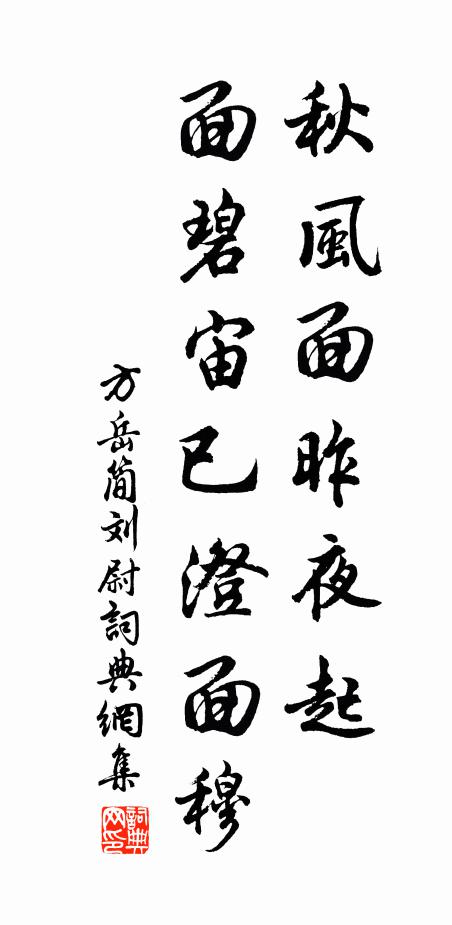 秋風面昨夜起
面碧宙已澄面穆
方岳简刘尉詞典網集
詞典网印